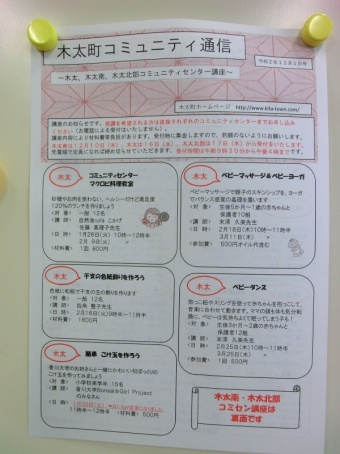 木太町コミュニティ通信
～木太、木太南、木太北部コミュニティセンター講座～
令和2年12月1日号
木太町ホームページ http://www.kita-town.com/
講座のお知らせです。受講を希望される方は直接それぞれのコミュニティセンターまでお申し込み
ください（お電話による受付はいたしません）。
講座内容により材料費等負担があります。受付時に集金しますので、釣銭のないようにお願いします。
木太南は12月10日（木）、木太は16日（水）、木太北部は17日（木）から受付をいたします。
木太
コミュニティセンター
マクロビ料理教室
砂糖やお肉を使わない、ヘルシーだけど満足度
120％のランチを作りましょう
・対 象： 一般 12名
・講 師： 自然食cafe こかげ
佐藤 真理子先生
・日 時： 1月26日(火) 10時～12時半
2月 9日(火) 〃
・材料費： 1回 800円
木太
干支の色紙飾りを作ろう
色紙に和紙で干支の丑の飾りを作ります
・対 象： 一般 12名
・日 時： 2月16日(火)9時半～11時
・材料費： 1800円
木太
簡単 こけ玉を作ろう
香川大学のお姉さんと一緒にかわいい和ぽっぷの
こけ玉を作ってみましょう
・対 象： 小学校高学年 15名
・講 師： 香川大学Bonsai☆Girl Project
のみなさん
11時半～12時半
・材料費： 500円
木太
ベビーマッサージ＆ベビーヨーガ
ベビーマッサージで親子のスキンシップを、ヨーガ
でバランス感覚の基礎を養います
・対 象： 生後5か月～2歳の赤ちゃんと
保護者10組
・講 師： 末澤 久美先生
・日 時： 2月18日(木)10時～11時
3月11日(木) 〃
・参加費： 500円オイル代含む
木太
ベビーダンス
抱っこ紐やスリングを使って赤ちゃんを抱っこして、
音楽に合わせて動きます。ママの頭も体も気分転
換に、ベビーは気持ちよくて眠ってしまうかも！
・対 象： 生後3か月～2歳の赤ちゃんと
保護者12組
・講 師： 末澤 久美先生
・日 時： 2月25日(木)10時～11時半
3月25日(木) 〃
・参加費： 1回 500円
木太南・木太北部
コミセン講座は
裏面です